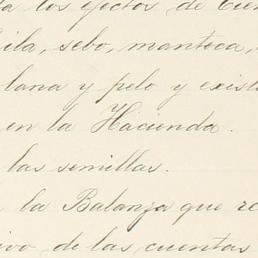 a los efectos de Tien
ila, sebo, manteca,
lana y pelo y exist
en la Hacienda.
las semillas.
la Balanza que re
ivo de las cuentas